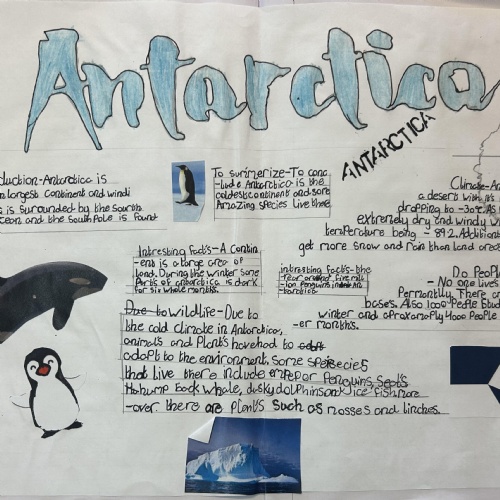 Antarctica
ANTARCTICA
duction-Antarctica is
largest continent and windi
is surounded by the South
cean and the South Pole is found
To summerize-To conc
-lude Antarctica is the
coldest continent and some
Amazing species live there
Climate-An
a desert with it's
dropping to -30°c. As
extremely dry and windy wi
temperature being -89.2. Additiona
get more snow and rain than land areas
Intresting facts-A Contin
-ent is a large area of
land. During the winter some
Parts of antarctica is dark
for six whole months.
intresting facts-the
-rear around five mill
-ion Penguins in
-tarctica
Do People
- No one lives
Permantly. There ar
bases. Also 1000 People Stud
winter and aproxamatly 4000 People
-er months.
Due to Wildlife-Due to
the cold climate in Antarctica,
animals and Plants have had to
adapt to the environment. Some species
that live there include emperor Penguins, Seal's
Hehump back whale, dusky dolphins and ice fish. more
-over there are plants such as mosses and linches.